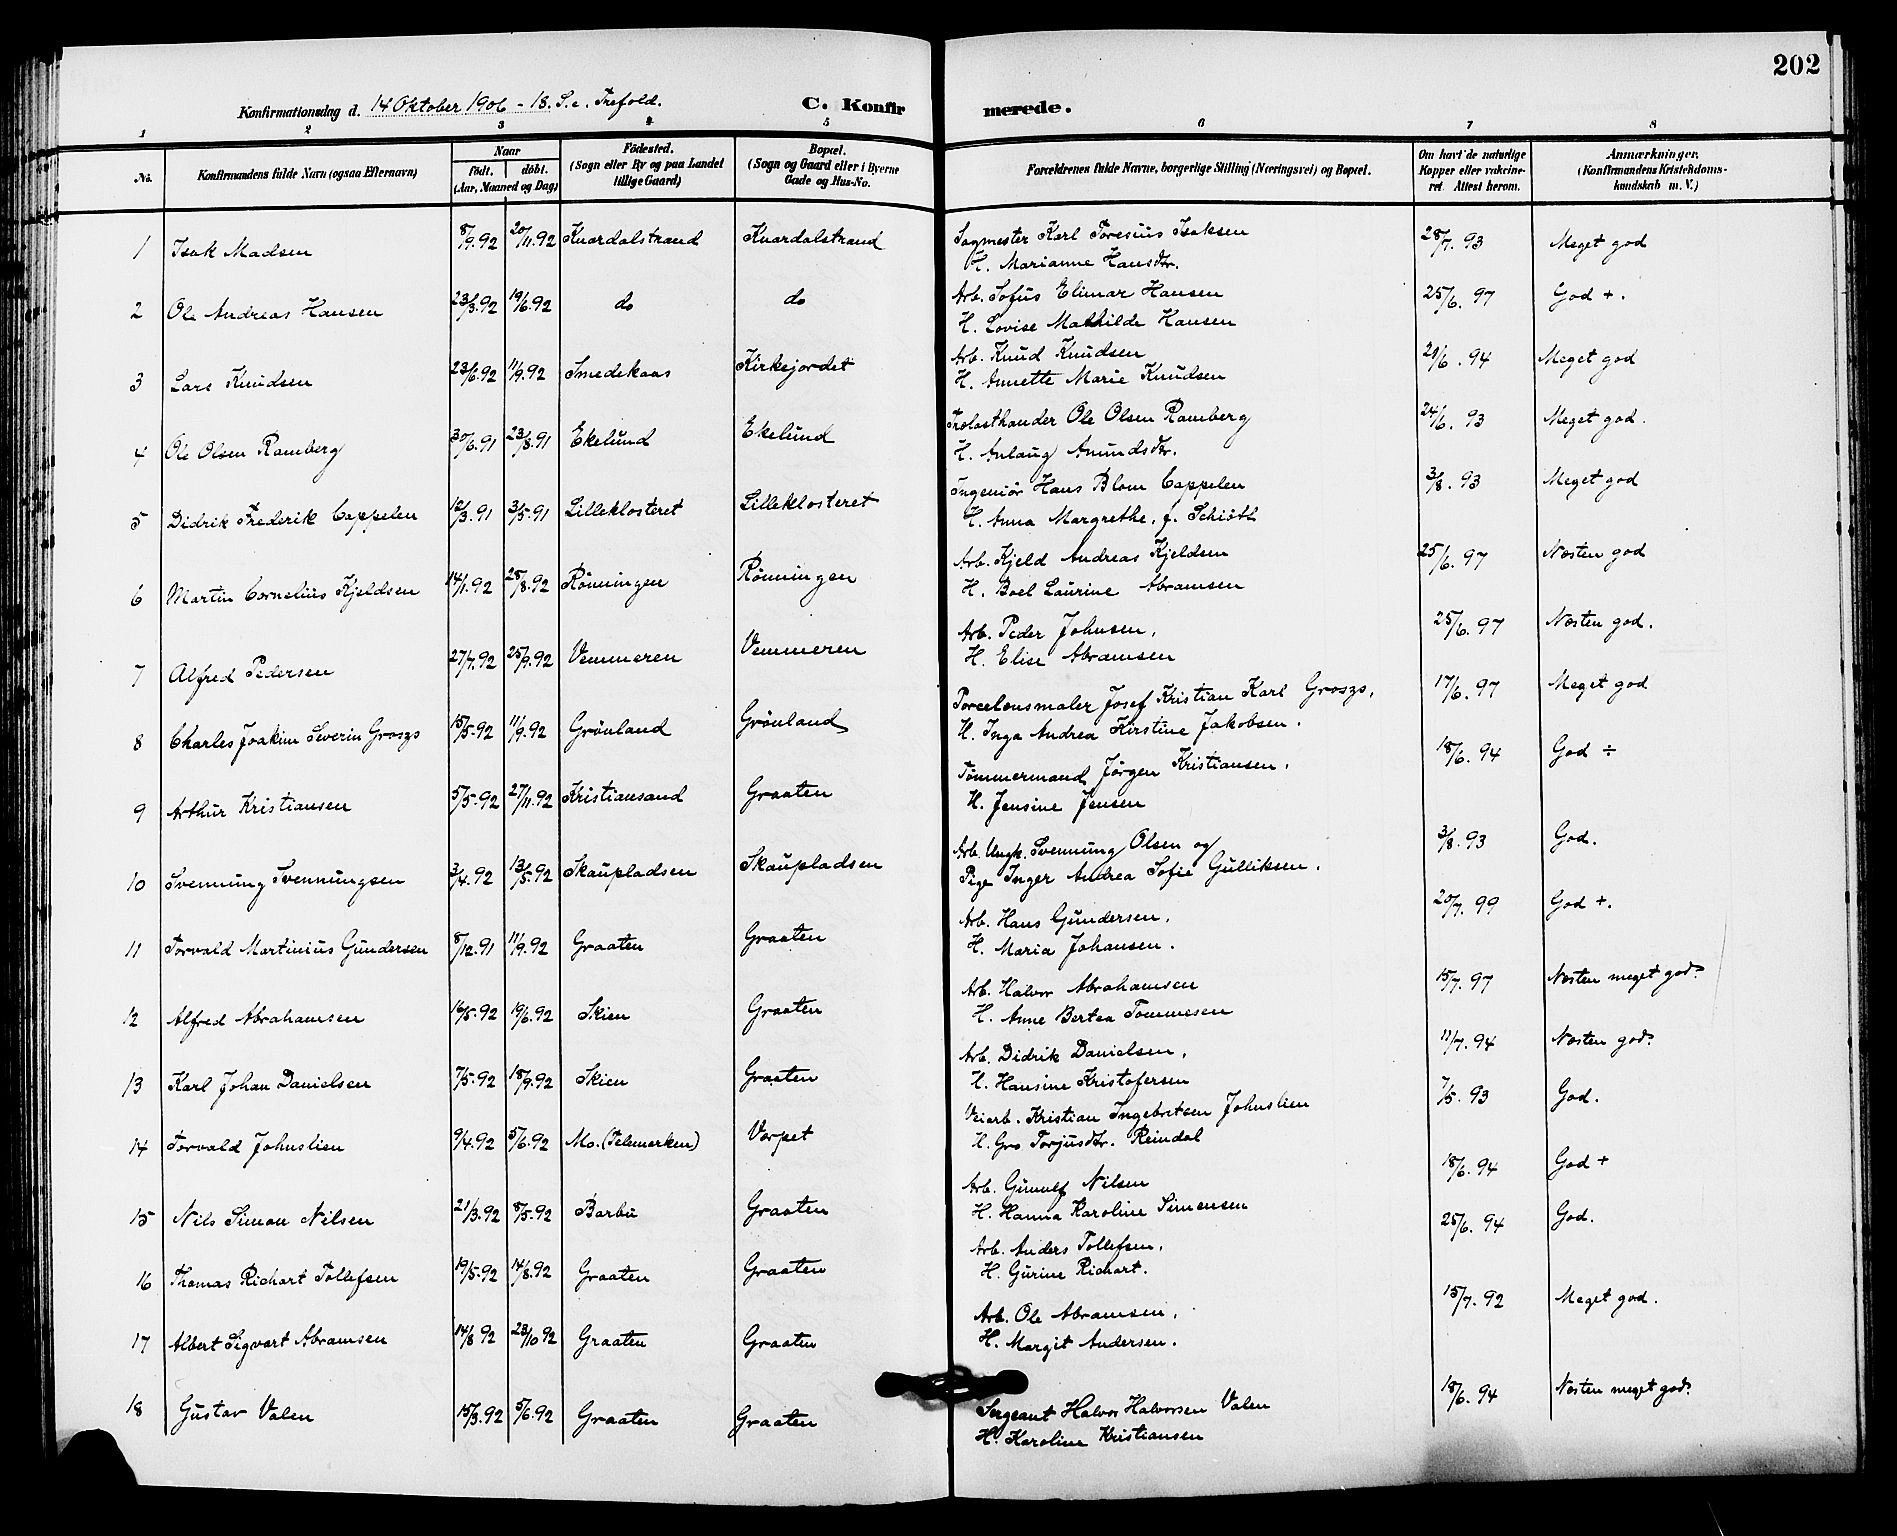 202
Konfirmationsdag d. 14 Oktober 1906 - 18. S. e. Trefold. C. Konfirmerede.
1 2 3 4 5 6 7 8
No. Konfirmandens fulde Navn (ogsaa Efternavn) Naar Födt. döbt. (Aar, Maaned og Dag) Födested. (Sogn eller By og paa Landet tillige Gaard) Bopæl. (Sogn og Gaard eller i Byerne Gade og Hus-No. Forældrenes fulde Navne, borgerlige Stilling (Næringsvei) og Bopæl. Om havt de naturlige Kopper eller vakcineret Attest herom. Anmærkninger. (Konfirmandens Kristendomskundskab m. V.)
1 Isak Madsen 8/9.92 20/11.92 Knardalstrand Knardalstrand Sagmester Karl Toresius Isaksen 28/7.93 Meget god
H. Marianne Hansdtr.
2 Ole Andreas Hansen 23/3.92 19/6.92 do do Arb. Sofus Elimar Hansen 25/6.97 God +.
H. Lovise Mathilde Hansen
3 Lars Knudsen 23/6.92 11/9.92 Smedekaas Kirkejordet Arb. Knud Knudsen 21/6.94 Meget god
H. Annette Marie Knudsen
4 Ole Olsen Ramberg 30/6.91 23/8.91 Ekelund Ekelund Trælasthandler Ole Olsen Ramberg 24/6.93 Meget god.
H. Anlaug Amundsdtr.
5 Didrik Frederik Cappelen 12/3.91 3/5.91 Lilleklosteret Lilleklosteret Ingeniör Hans Blom Cappelen 3/8.93 Meget god
H. Anna Margrethe, f. Schiött
6 Martin Cornelius Kjeldsen 14/1.92 28/8.92 Rönningen Rönningen Arb. Kjeld Andreas Kjeldsen 25/6.97 Næsten god
H. Boel Laurine Abramsen
7 Alfred Pedersen 27/7.92 25/9.92 Vemmeren Vemmeren Arb. Peder Johnsen, 25/6.97 Næsten god.
H. Elise Abramsen
8 Charles Joakim Severin Groszs 15/5.92 11/9.92 Grönland Grönland Porcelænsmaler Josef Kristian Karl Groszs, 17/6.97 Meget god
H. Inga Andrea Kirstine Jakobsen.
9 Arthur Kristiansen 5/5.92 27/11.92 Kristiansand Graaten Tömmermand Jörgen Kristiansen, 18/6.94 God ÷
H. Jensine Jensen
10 Svennung Svennungsen 3/4.92 13/5.92 Skaupladsen Skaupladsen Arb. Ungk. Svennung Olsen og 3/8.93 God.
Pige Inger Andrea Sofie Gulliksen.
11 Torvald Martinius Gundersen 8/12.91 11/9.92 Graaten Graaten Arb. Hans Gundersen, 20/7.99 God +.
H. Maria Johansen.
12 Alfred Abrahamsen 16/5.92 19/6.92 Skien Graaten Arb. Halvor Abrahamsen 15/7.97 Næsten meget god.
H. Anne Bertea Tommesen
13 Karl Johan Danielsen 7/5.92 18/9.92 Skien Graaten Arb. Didrik Danielsen, 11/7.94 Næsten god.
H. Hansine Kristofersen
14 Torvald Johnslien 9/4.92 5/6.92 Mo. (Telemarken) Vorpet Veiarb. Kristian Ingebretsen Johnslien 7/5.93 God.
H. Gro Torjusdtr. Reindal
15 Nils Simon Nilsen 21/3.92 8/5.92 Barbu Graaten Arb. Gunulf Nilsen 18/6.94 God +
H. Hanna Karoline Simensen
16 Thomas Richart Tollefsen 19/5.92 14/8.92 Graaten Graaten Arb. Anders Tollefsen, 25/6.94 God.
H. Gurine Richart.
17 Albert Sigvart Abramsen 14/8 92 23/10 92 Graaten Graaten Arb. Ole Abramsen, 15/7.92 Meget god.
H. Margit Andersen.
18 Gustav Valen 15/3.92 5/6.92 Graaten Graaten Sergeant Halvor Halvorsen Valen 18/6.94 Næsten meget god.
H. Karoline Kristiansen